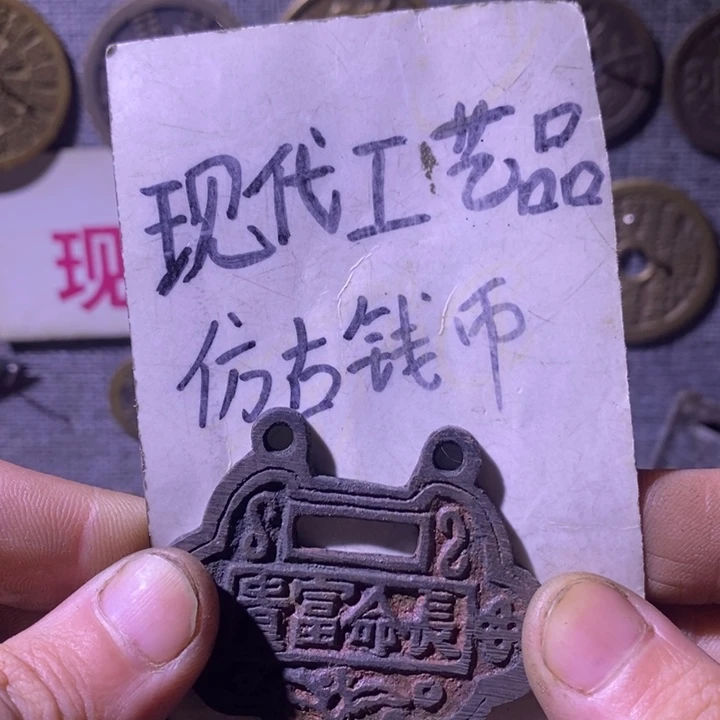 现代工艺品
仿古钱币
现
長命富貴